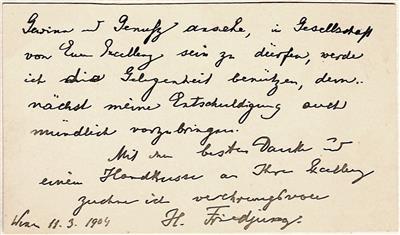 Gewinn u Genuß ansehe, in Gesellschaft
von Euer Exzellenz sein zu dürfen, werde
ich die Gelegenheit benützen, dem-
nächst meine Entschuldigung auch
mündlich vorzubringen.
Mit dem besten Danke u
einem Handkusse an Ihre Exzellenz
zeichne ich verehrungsvoll
Wien 11.3.1904 H. Friedjung.